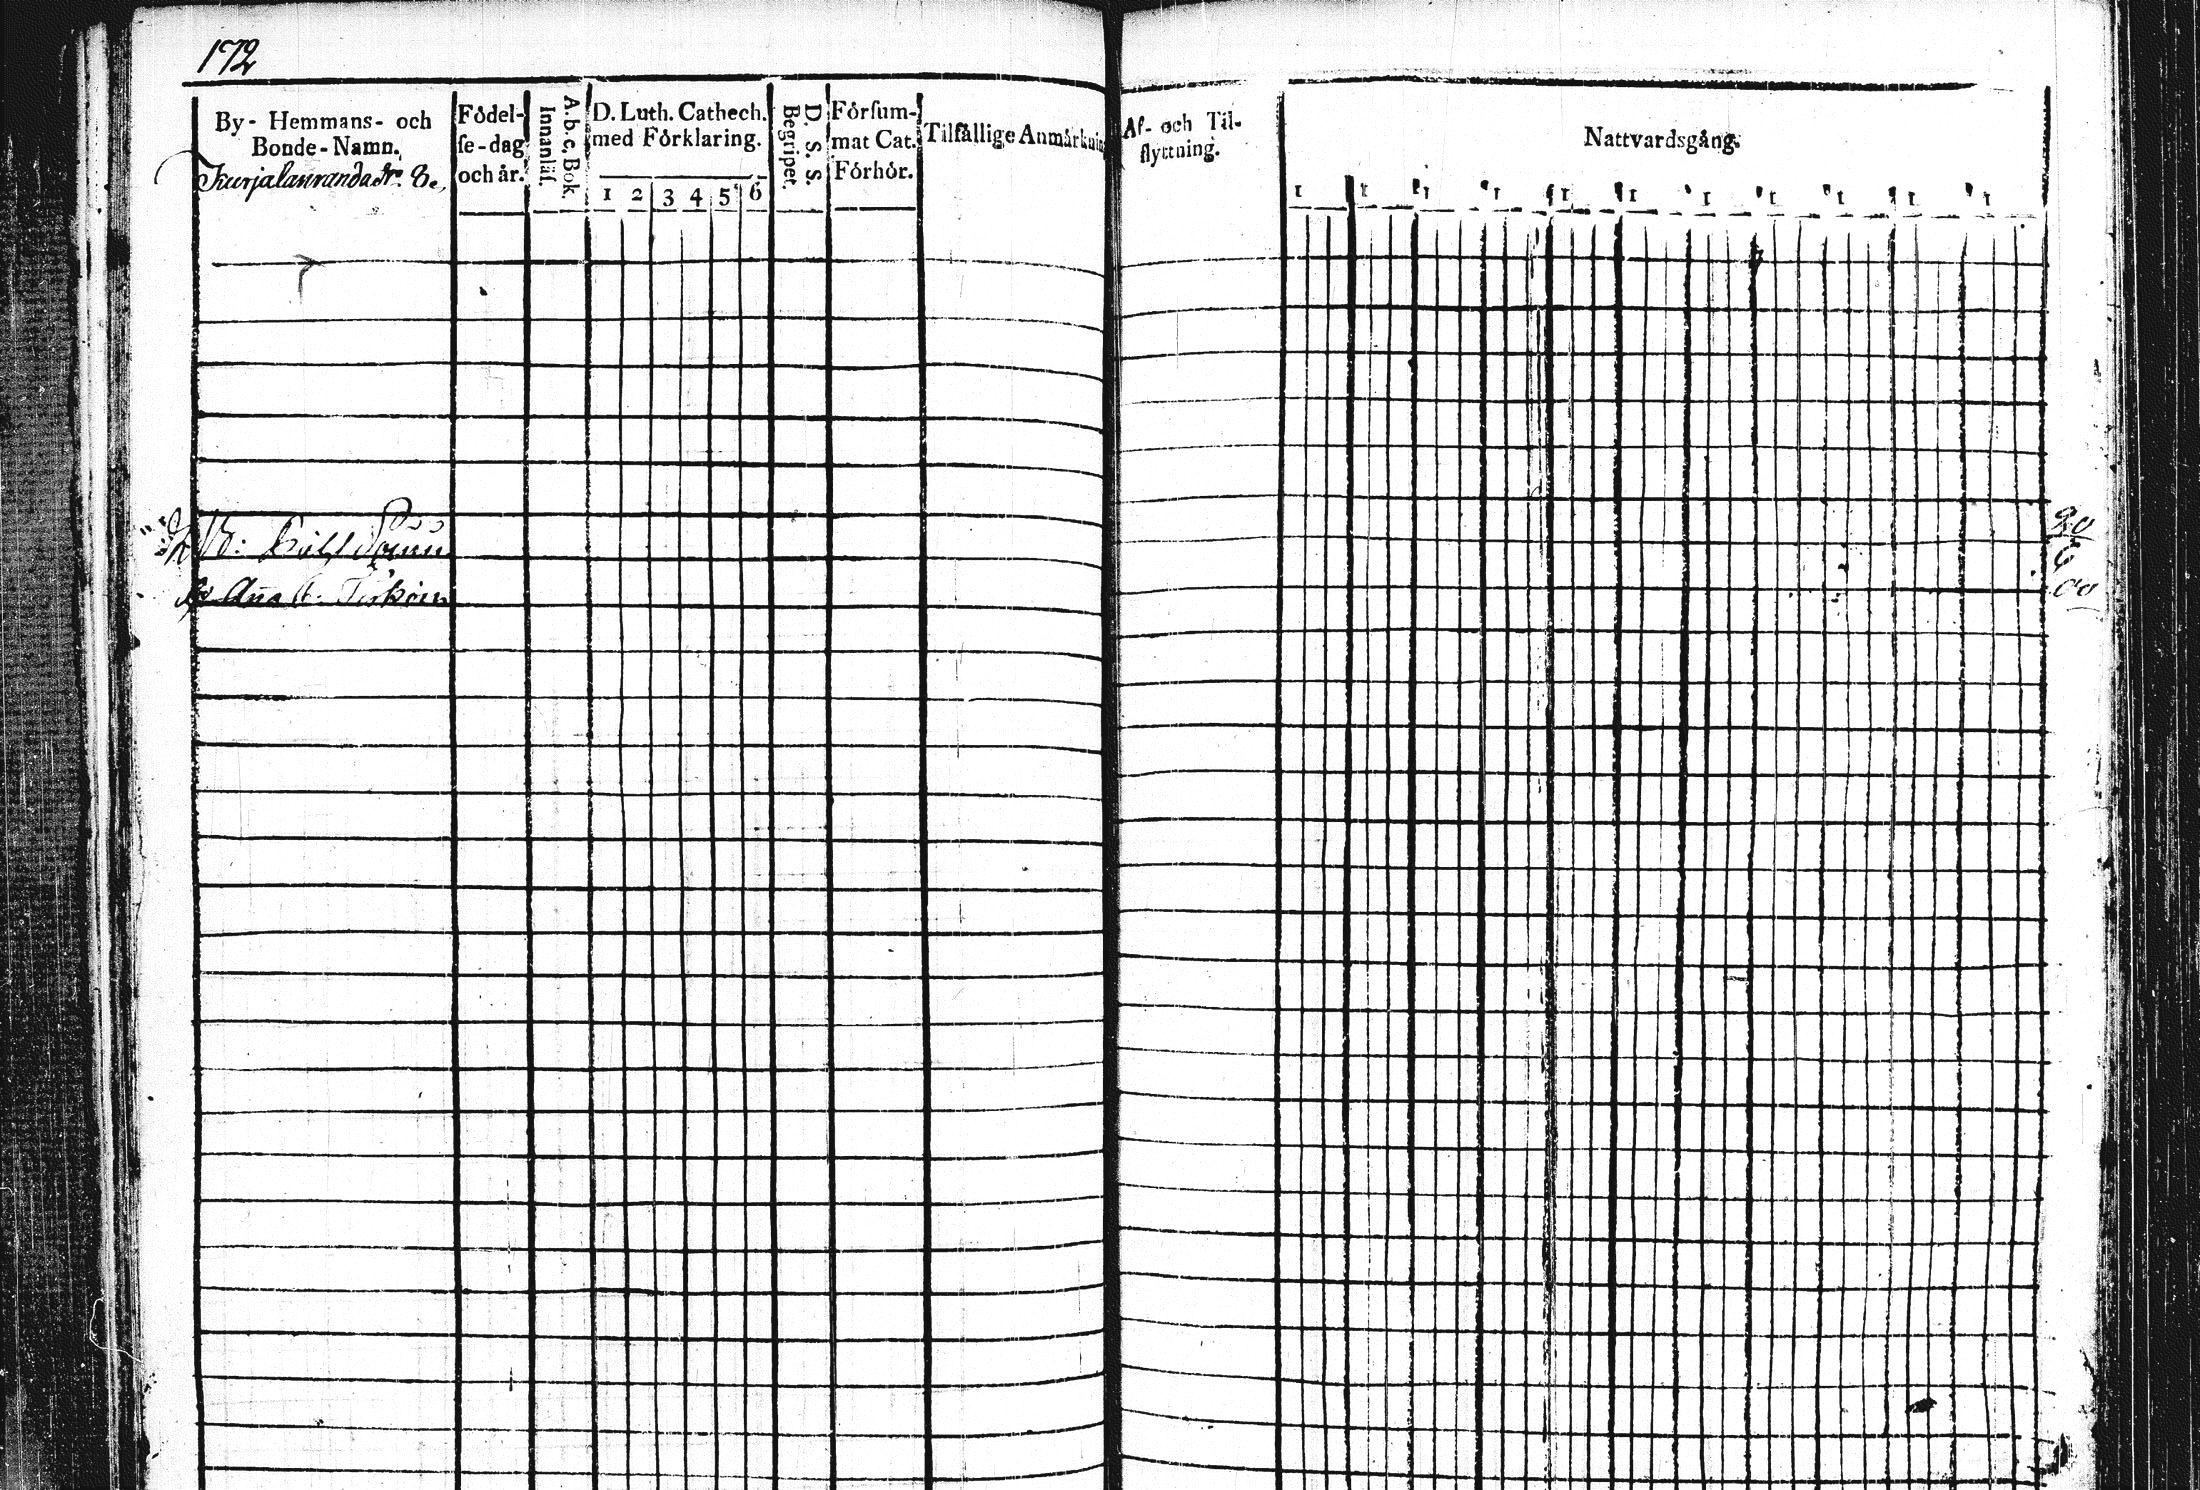 172
By- Hemmans- och
Bonde-Namn.
Kurjalanranda No. 8.
Födel-
se-dag
och år.
A.b.c. Bok.
Innanläs.
D. Luth. Cathech.
med Förklaring.
1 2 3 4 5 6
D. S. S.
Begripet.
Försum-
mat Cat.
Förhör.
Tilfällige Anmärknin
Af- och Til-
flyttning.
Nattvardsgång.
1 1 1 1 1 1 1 1 1 1 1
Anna